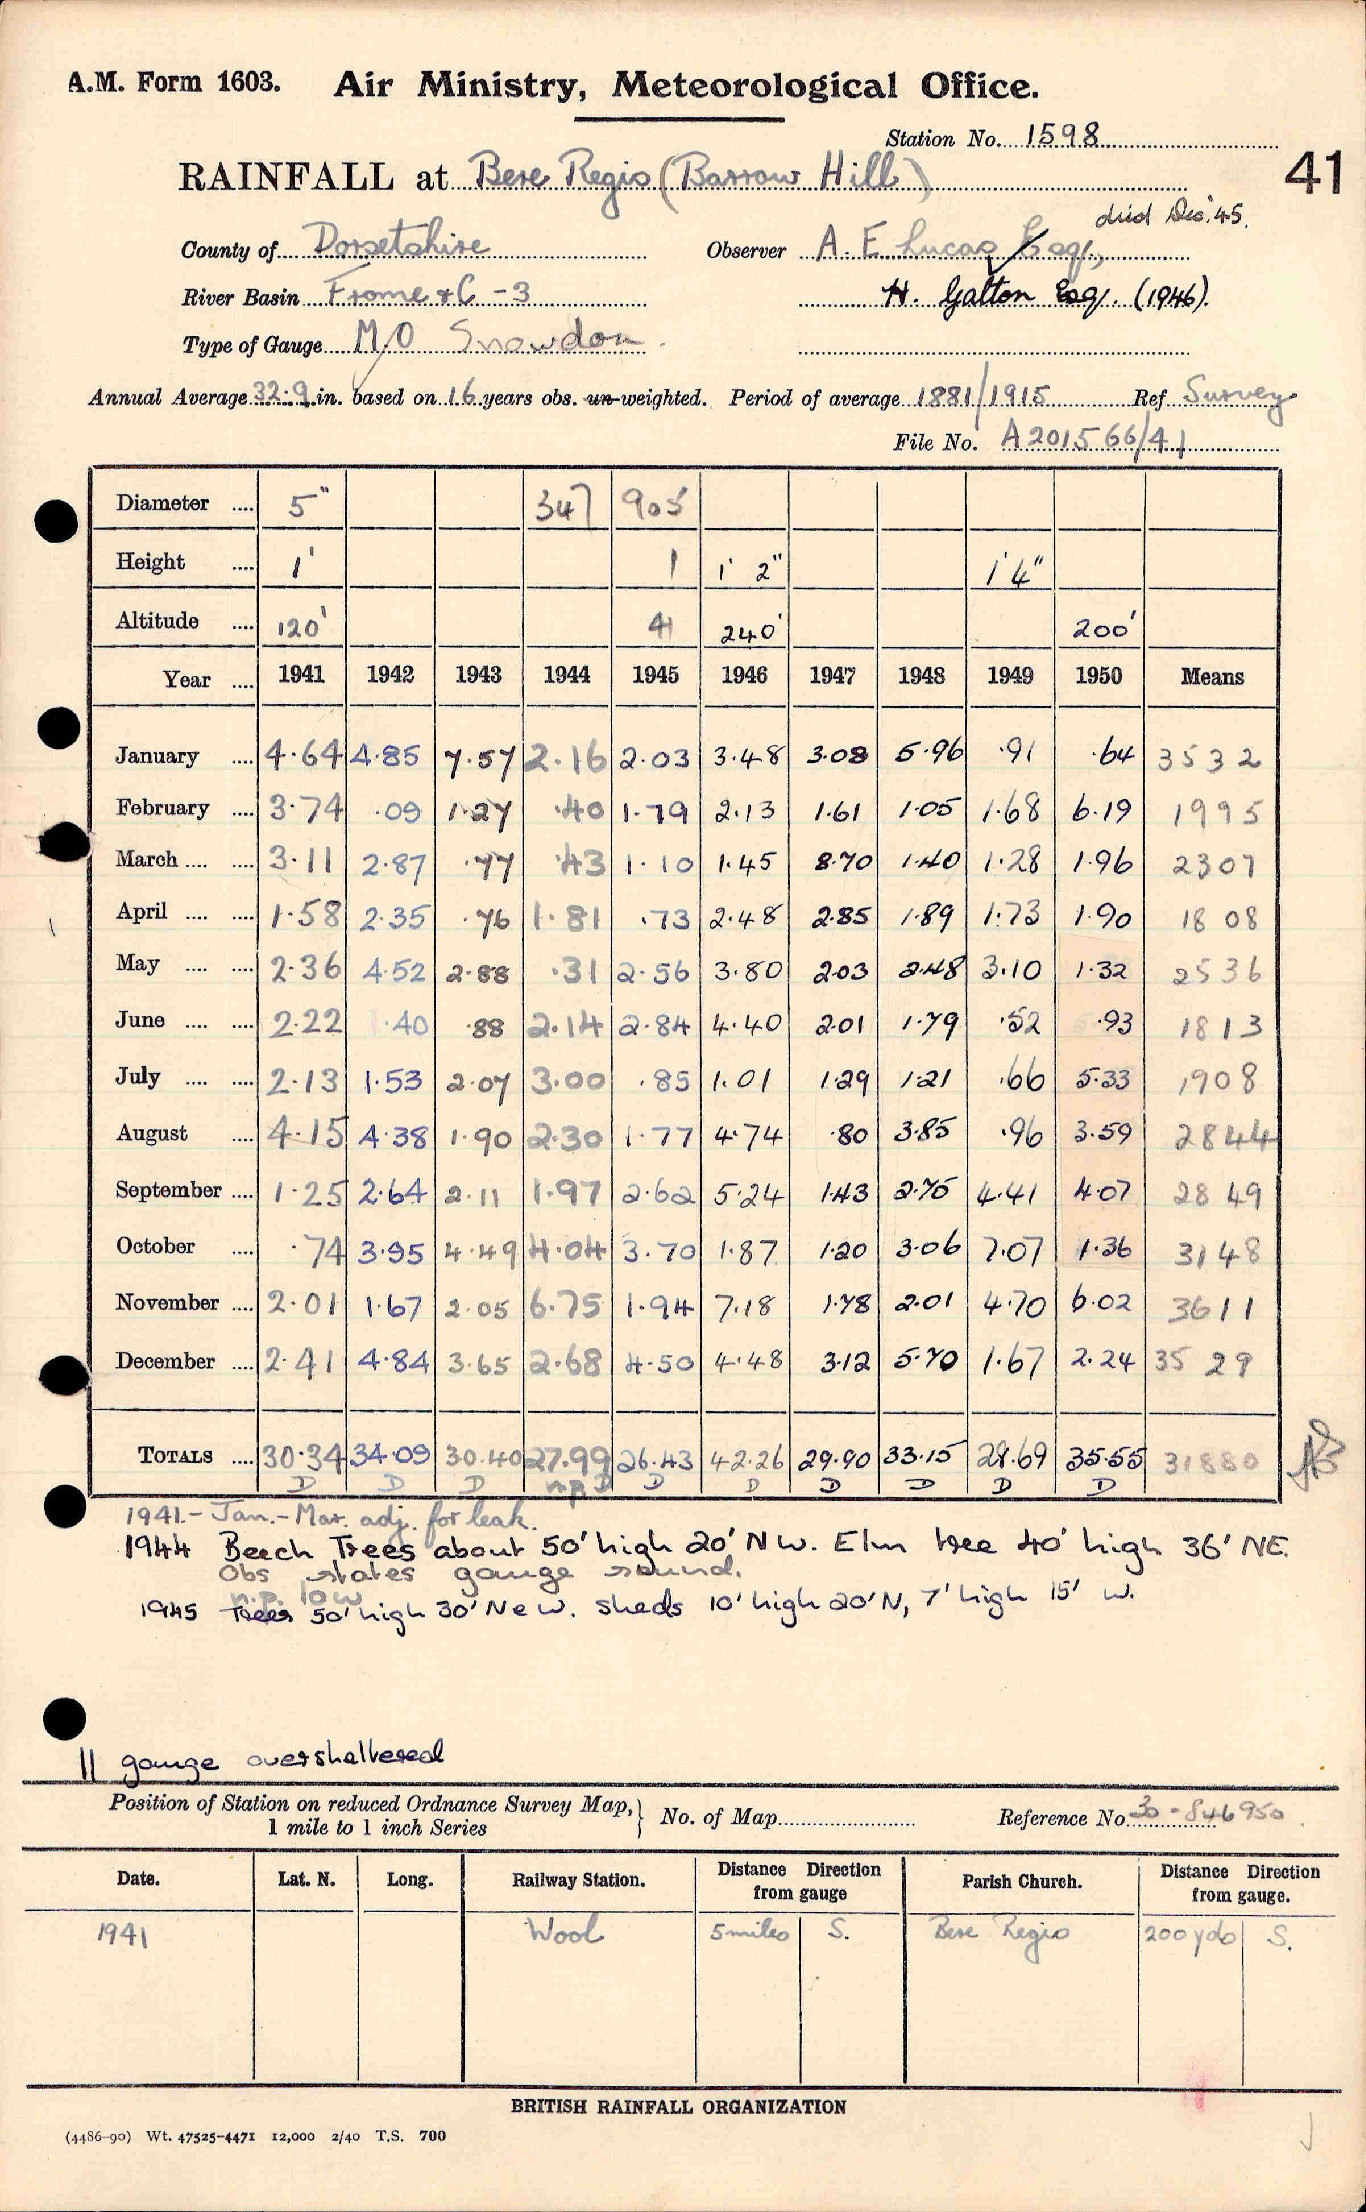 A.M. Form 1603. Air Ministry, Meteorological Office.
Station No. 1598
41
RAINFALL at Bere Regis (Barrow Hill)
died Dec. '45.
County of Dorsetshire Observer A. E. Lucas Esq.,
River Basin Frome &C - 3 H. Galton Esq. (1946).
Type of Gauge M/O Snowdon.
Annual Average 32.9 in. based on 16 years obs. un-weighted. Period of average 1881/1915 Ref Survey
File No. A201566/41
Diameter .... 5" 347 905
Height .... 1' 1 1' 2" 1' 4"
Altitude .... 120' 41 240' 200'
Year .... 1941 1942 1943 1944 1945 1946 1947 1948 1949 1950 Means
January .... 4.64 4.85 7.57 2.16 2.03 3.48 3.08 5.96 .91 .64 3532
February .... 3.74 .09 1.27 .40 1.79 2.13 1.61 1.05 1.68 6.19 1995
March .... .... 3.11 2.87 .77 .43 1.10 1.45 8.70 1.40 1.28 1.96 2307
April .... .... 1.58 2.35 .76 1.81 .73 2.48 2.85 1.89 1.73 1.90 1808
May .... .... 2.36 4.52 2.88 .31 2.56 3.80 2.03 2.48 3.10 1.32 2536
June .... .... 2.22 .40 .88 2.14 2.84 4.40 2.01 1.79 .52 .93 1813
July .... .... 2.13 1.53 2.07 3.00 .85 1.01 1.29 1.21 .66 5.33 1908
August .... 4.15 4.38 1.90 2.30 1.77 4.74 .80 3.85 .96 3.59 2844
September .... 1.25 2.64 2.11 1.97 2.62 5.24 1.43 2.75 4.41 4.07 2849
October .... .74 3.95 4.49 4.04 3.70 1.87 1.20 3.06 7.07 1.36 3148
November .... 2.01 1.67 2.05 6.75 1.94 7.18 1.78 2.01 4.70 6.02 3611
December .... 2.41 4.84 3.65 2.68 4.50 4.48 3.12 5.70 1.67 2.24 3529
TOTALS .... 30.34 34.09 30.40 27.99 26.43 42.26 29.90 33.15 28.69 35.55 31880
D D D n.p D D D D D D D
1941.- Jan.- Mar. adj. for leak.
1944 Beech Trees about 50' high 20' NW. Elm tree 40' high 36' NE.
Obs states gauge sound.
n.p. low
1945 Trees 50' high 30' N & W. sheds 10' high 20' N, 7' high 15' W.
11 gauge oversheltered
Position of Station on reduced Ordnance Survey Map, } No. of Map Reference No. 30 - 846950
1 mile to 1 inch Series
Date. Lat. N. Long. Railway Station. Distance Direction from gauge Parish Church. Distance Direction from gauge.
1941 Wool 5 miles S. Bere Regis 200 yds S.
BRITISH RAINFALL ORGANIZATION
(4486-90) Wt. 47525-4471 12,000 2/40 T.S. 700